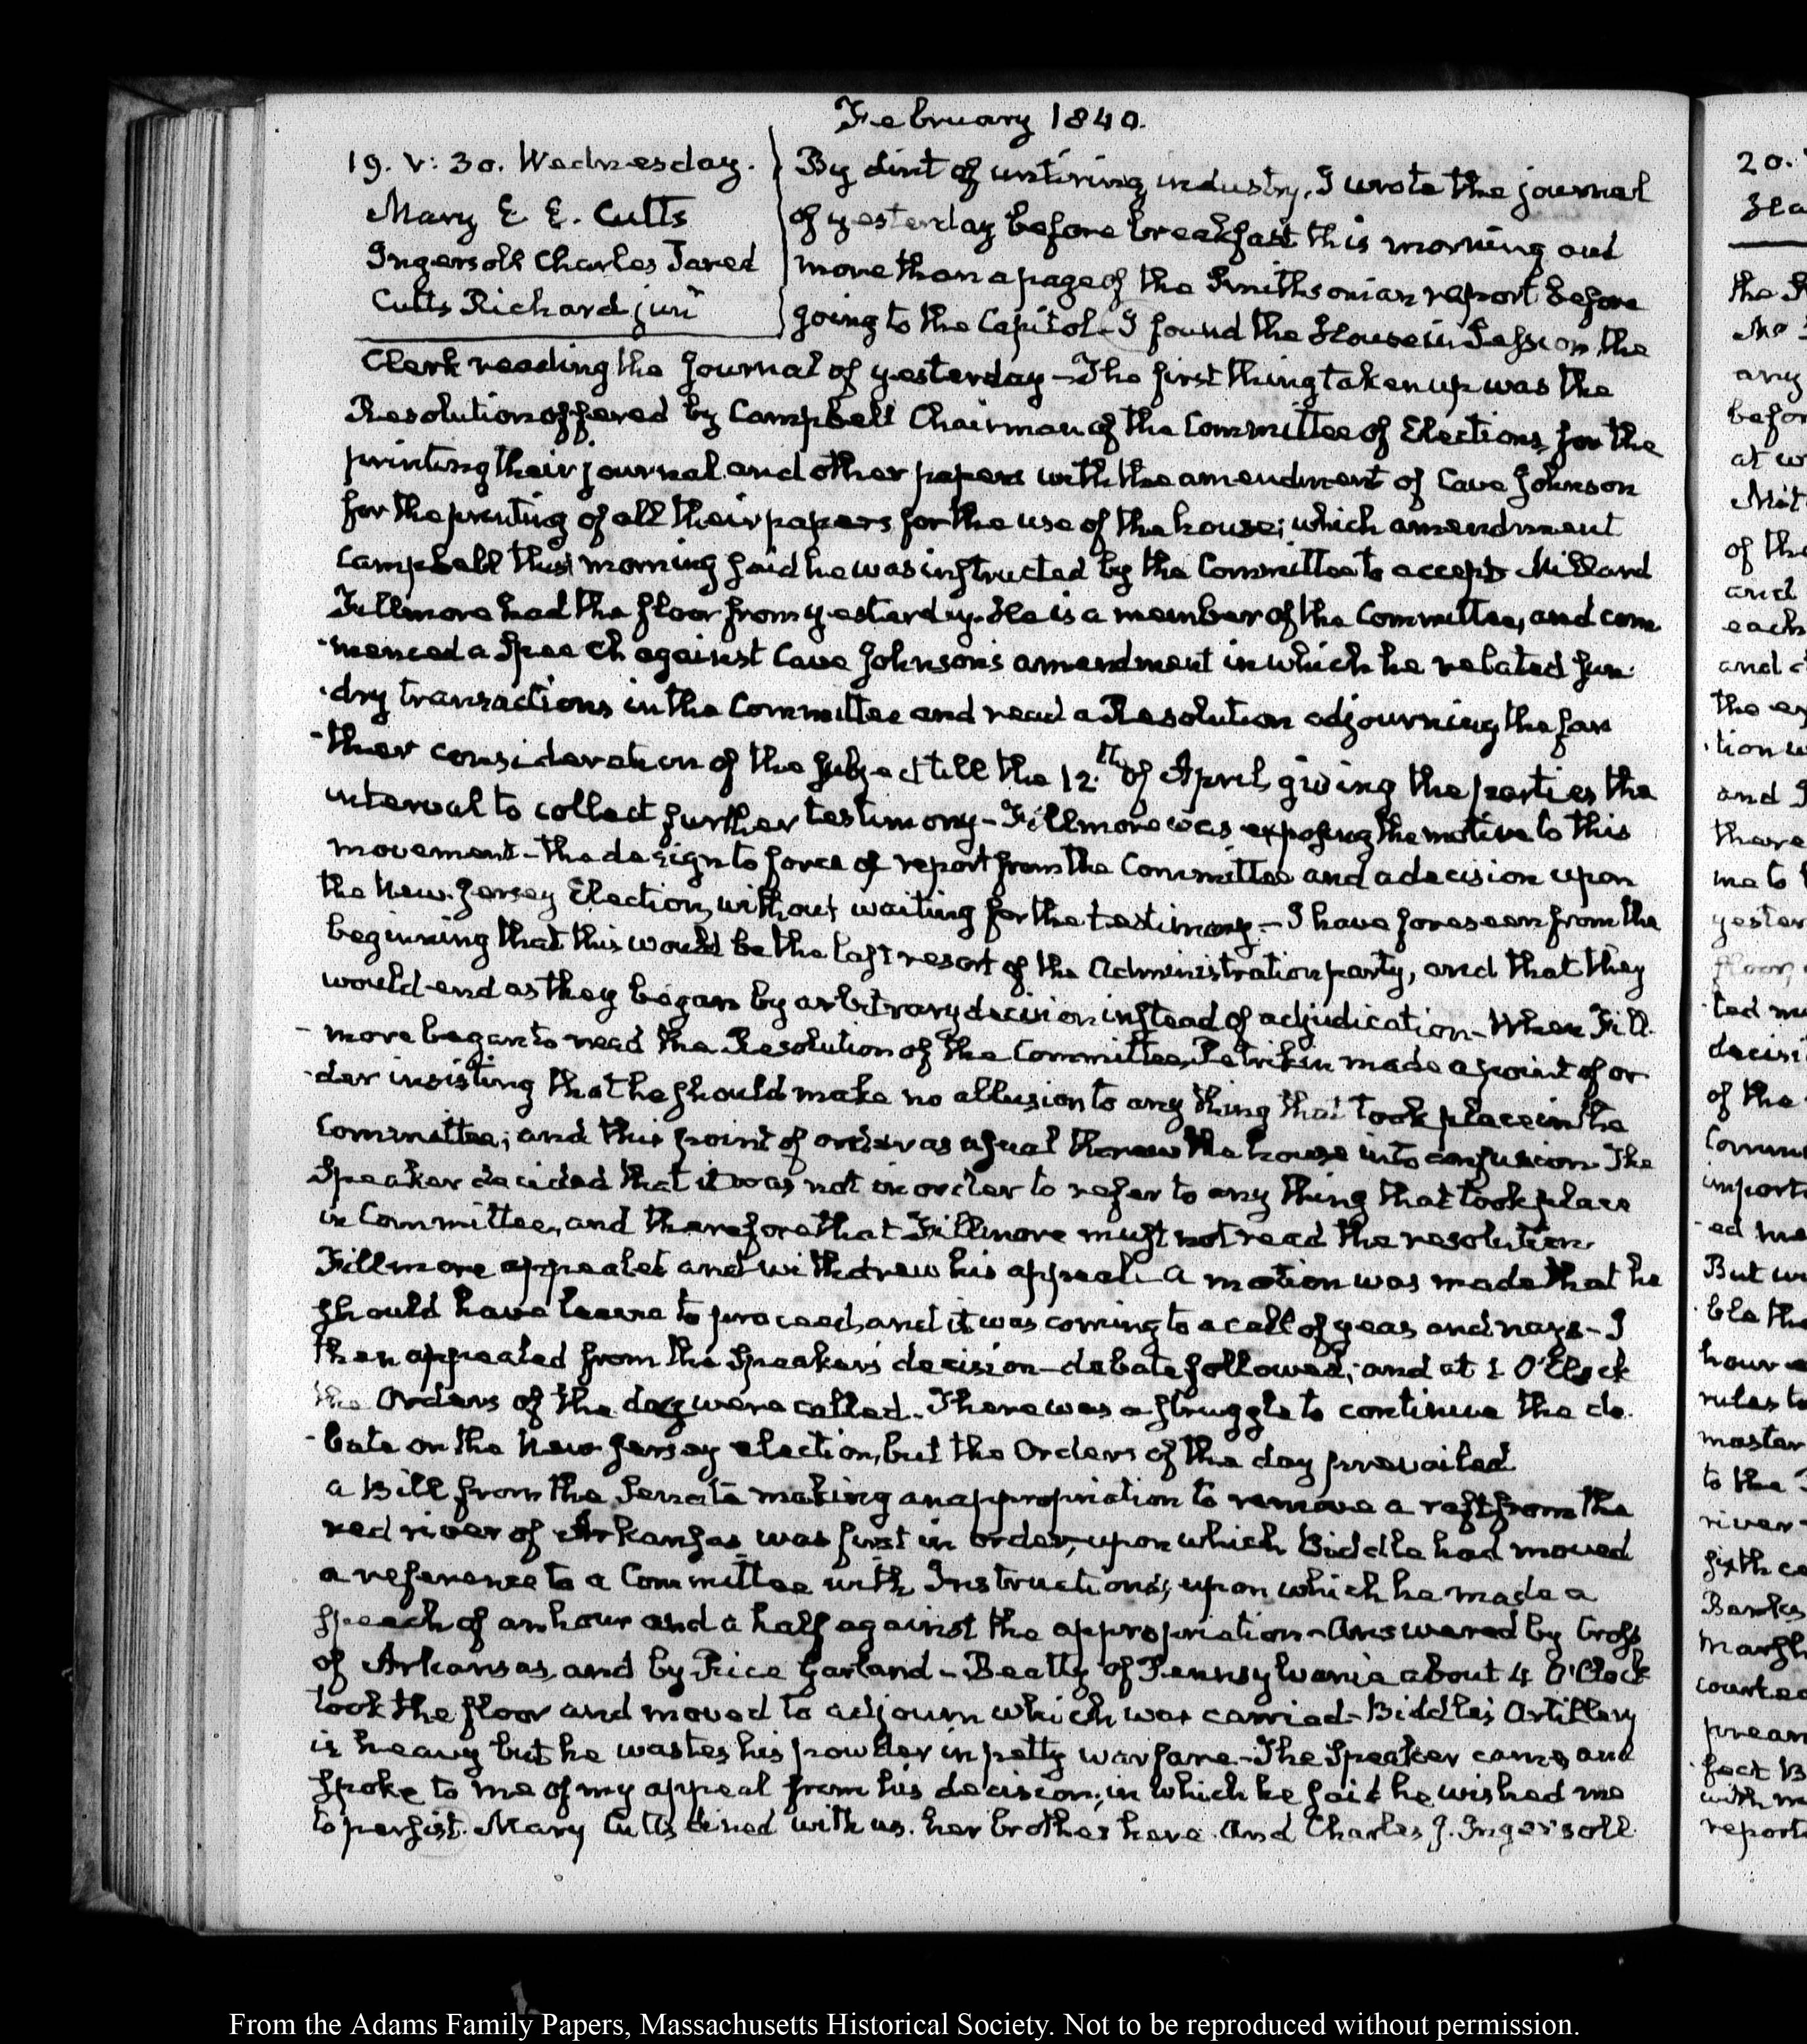 February 1840.
19. V: 30. Wednesday.
Mary E. E. Cutts
Ingersoll Charles Jared
Cutts Richard junr
By dint of untiring industry, I wrote the journal
of yesterday before breakfast this morning and
more than a page of the Smithsonian report before
going to the Capitol. I found the House in Session the
Clerk reading the journal of yesterday - The first thing taken up was the
Resolution offered by Campbell Chairman of the Committee of Elections, for the
printing their journal and other papers with the amendment of Cave Johnson
for the printing of all their papers for the use of the house; which amendment
Campbell this morning said he was instructed by the Committee to accept Millard
Fillmore had the floor from yesterdy. He is a member of the Committee, and com
-menced a Speech against Cave Johnson's amendment in which he related sun-
-dry transactions in the Committee and read a Resolution adjourning the far
-ther consideration of the subject till the 12.th of April giving the parties the
interval to collect further testimony - Fillmore was exposing the motive to this
movement - the design to force a report from the Committee and a decision upon
the New-Jersey Election, without waiting for the testimony - I have foreseen from the
beginning that this would be the last resort of the Administration party, and that they
would end as they began by arbitrary decision instead of adjudication - When Fill-
-more began to read the Resolution of the Committee, Petrikin made a point of or-
-der insisting that he should make no allusion to any thing that took place in the
Committee; and this point of order as usual threw the house into confusion. The
Speaker decided that it was not in order to refer to any thing that took place
in Committee, and therefore that Fillmore must not read the resolution.
Fillmore appealed and withdrew his appeal. a motion was made that he
should have leave to proceed, and it was coming to a call of yeas and nays - I
then appealed from the Speaker's decision - debate followed; and at 1 O'Clock
the Orders of the day were called. There was a struggle to continue the de-
-bate on the New-Jersey election, but the Orders of the day prevailed
a Bill from the Senate making an appropriation to remove a raft from the
red river of Arkansas was first in order, upon which Biddle had moved
a reference to a Committee with Instructions; upon which he made a
speech of an hour and a half against the appropriation - Answered by Cross
of Arkansas, and by Rice Garland - Beatty of Pennsylvania about 4 O'Clock
took the floor and moved to adjourn which was carried - Biddle's Artillery
is heavy but he wastes his powder in petty warfare - The Speaker came and
spoke to me of my appeal from his decision; in which he said he wished me
to persist. Mary Cutts dined with us. her brother here. And Charles J. Ingersoll.
20.
the
any
befor
at w
of the
and
each
and
the
tion
and
there
me to
yester
floor
ted
decisi
of the
Commi
import
ed me
But
ble the
hour
rules to
master
to the
river
sixth
Banks
Marsh
courte
with
report
From the Adams Family Papers, Massachusetts Historical Society. Not to be reproduced without permission.